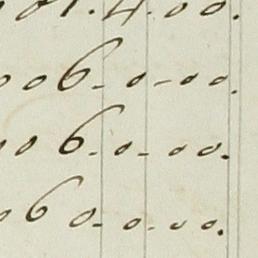 01. 4. 00.
006. 0-00.
006. 0- 00.
060. 0. 00.